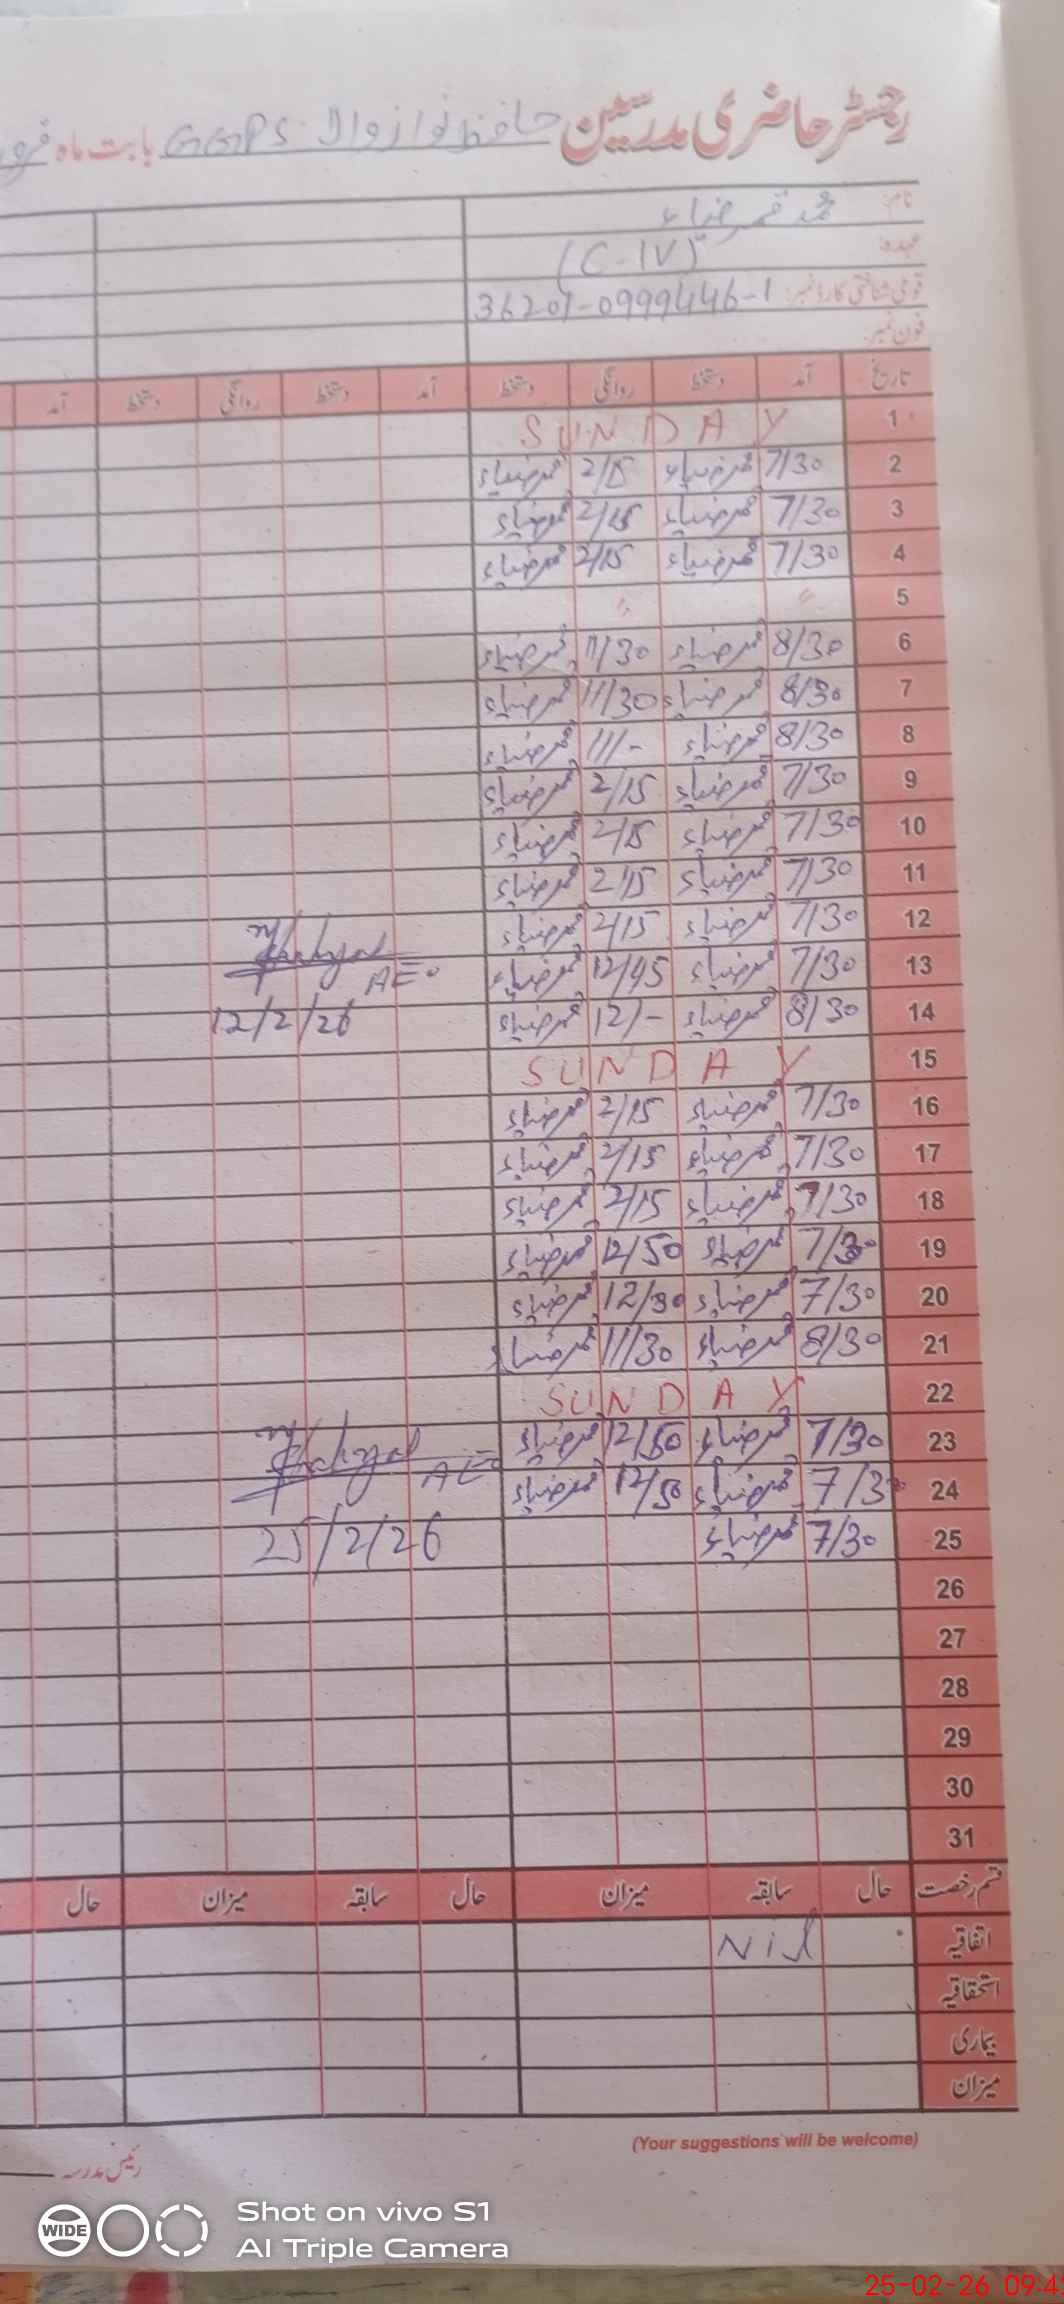 رجسٹر حاضری مدرسین GGPS حافظ نواز والا بابت ماہ
نام: محمد قمر ضیاء
عہدہ: (C-IV)
قومی شناختی کارڈ نمبر: 36201-0999446-1
فون نمبر:
تاریخ آمد دستخط روانگی دستخط آمد دستخط روانگی دستخط آمد
1 SUNDAY
2 7/30 قمر ضیاء 2/15 قمر ضیاء
3 7/30 قمر ضیاء 2/15 قمر ضیاء
4 7/30 قمر ضیاء 2/15 قمر ضیاء
5 〃 〃
6 8/30 قمر ضیاء 11/30 قمر ضیاء
7 8/30 قمر ضیاء 11/30 قمر ضیاء
8 8/30 قمر ضیاء 11/- قمر ضیاء
9 7/30 قمر ضیاء 2/15 قمر ضیاء
10 7/30 قمر ضیاء 2/15 قمر ضیاء
11 7/30 قمر ضیاء 2/15 قمر ضیاء
12 7/30 قمر ضیاء 2/15 قمر ضیاء
13 7/30 قمر ضیاء 12/45 قمر ضیاء AEO
14 8/30 قمر ضیاء 12/- قمر ضیاء 12/2/26
15 SUNDAY
16 7/30 قمر ضیاء 2/15 قمر ضیاء
17 7/30 قمر ضیاء 2/15 قمر ضیاء
18 7/30 قمر ضیاء 2/15 قمر ضیاء
19 7/30 قمر ضیاء 12/50 قمر ضیاء
20 7/30 قمر ضیاء 12/30 قمر ضیاء
21 8/30 قمر ضیاء 11/30 قمر ضیاء
22 SUNDAY
23 7/30 قمر ضیاء 12/50 قمر ضیاء
24 7/30 قمر ضیاء 12/50 قمر ضیاء AEO
25 7/30 قمر ضیاء 25/2/26
26
27
28
29
30
31
قسم رخصت حال سابقہ میزان حال سابقہ میزان حال
اتفاقیہ Nil
استحقاقیہ
بیماری
میزان
(Your suggestions will be welcome)
رئیس مدرسہ
WIDE
Shot on vivo S1
AI Triple Camera
25-02-26 09:4